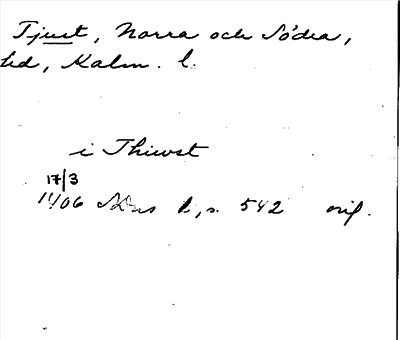 Tjust, Norra och Södra,
hd, Kalm. l.
i Thiwst
17/3
1406 SDns b, s. 542 orig.